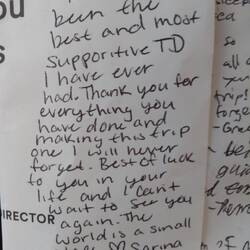 been the
best and most
supporitive TD
I have ever
had. Thank you for
everything you
have done and
making this trip
one I will never
forget. Best of luck
to you in your
life and I can't
wait to see you
again. The
world is a small
DIRECTOR
all
trip!